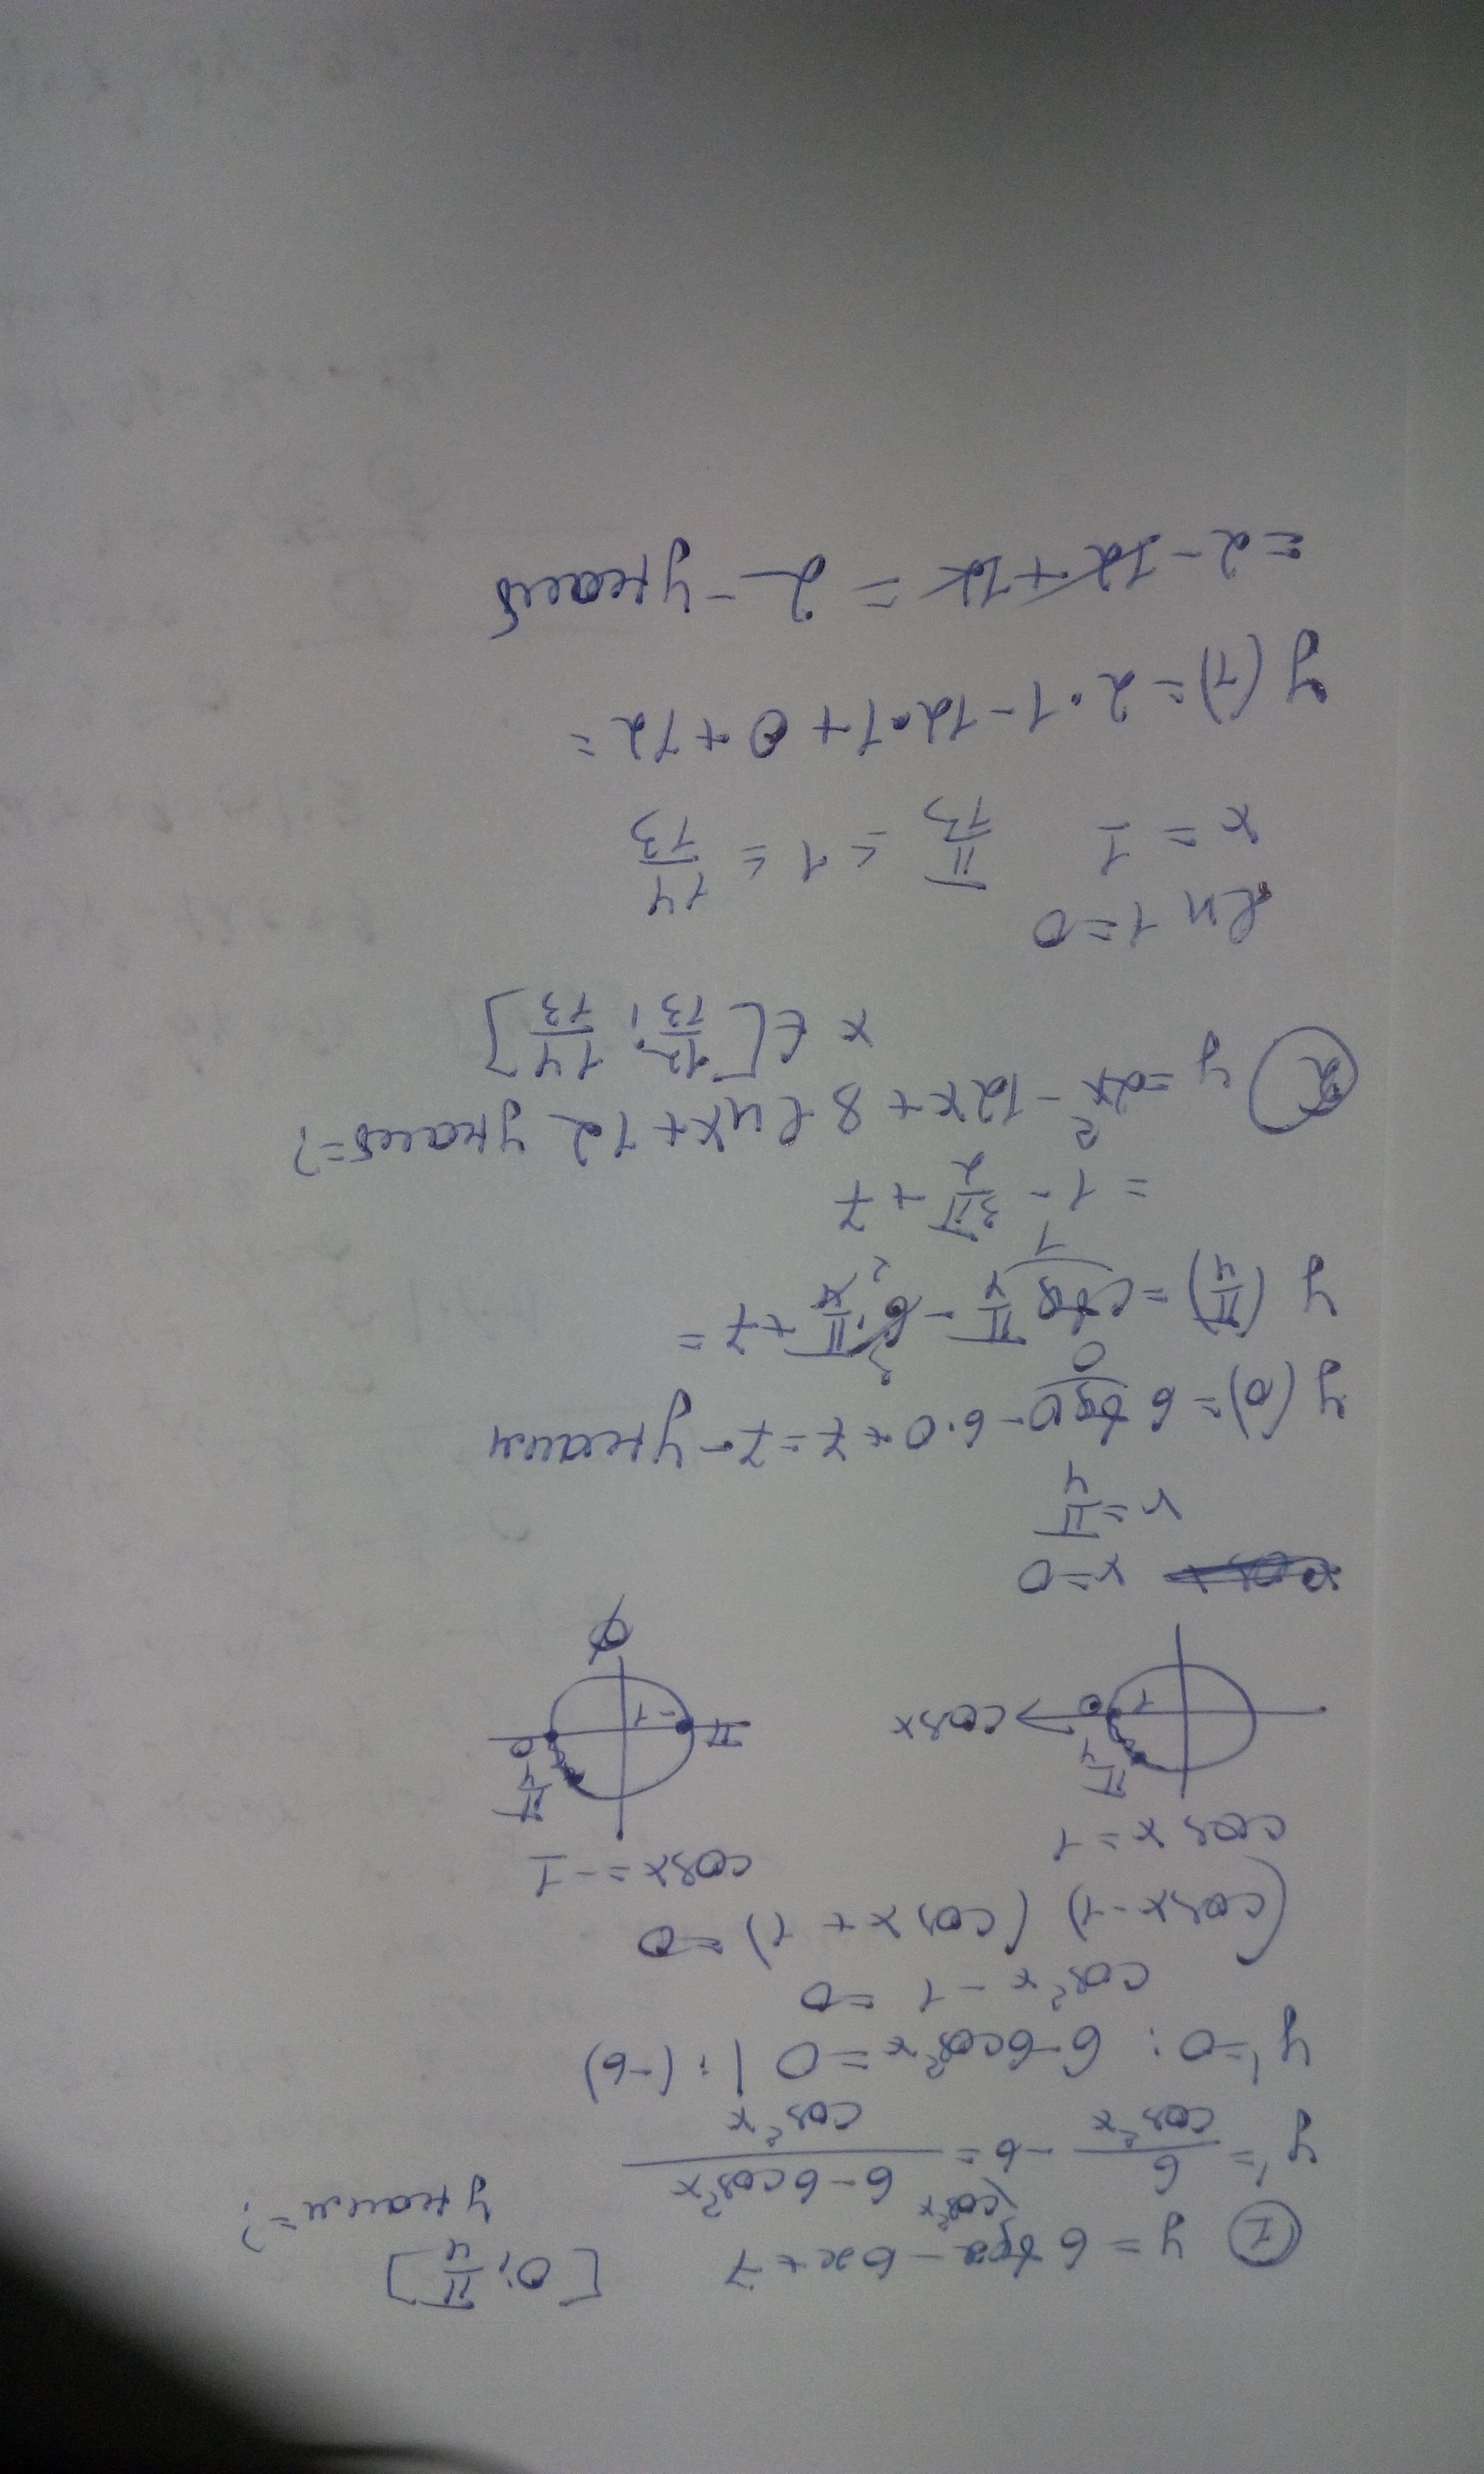 ① y = 6 tgx - 6x + 7 [0; π/4]
yнаим = ?
y' = 6/cos²x - 6 = (6 - 6cos²x)/cos²x
(cos²x
y' = 0: 6 - 6cos²x = 0 | : (-6)
cos²x - 1 = 0
(cosx - 1) (cosx + 1) = 0
cosx = 1 cosx = -1
π/4 π/4
0 1 cosx π -1 0
∅
x = 0
x = π/4
y(0) = 6 tg0 - 6·0 + 7 = 7 - yнаим
0
y(π/4) = 6tg π/4 - 6·π/4 + 7 =
1 3 2
= 1 - 3π/2 + 7
② y = 2x² - 12x + 8 ln x + 12 yнаиб = ?
x ∈ [12/13; 14/13]
ln 1 = 0
x = 1 11/13 < 1 = 14/13
y(1) = 2·1 - 12·1 + 0 + 12 =
= 2 - 12 + 12 = 2 - yнаиб